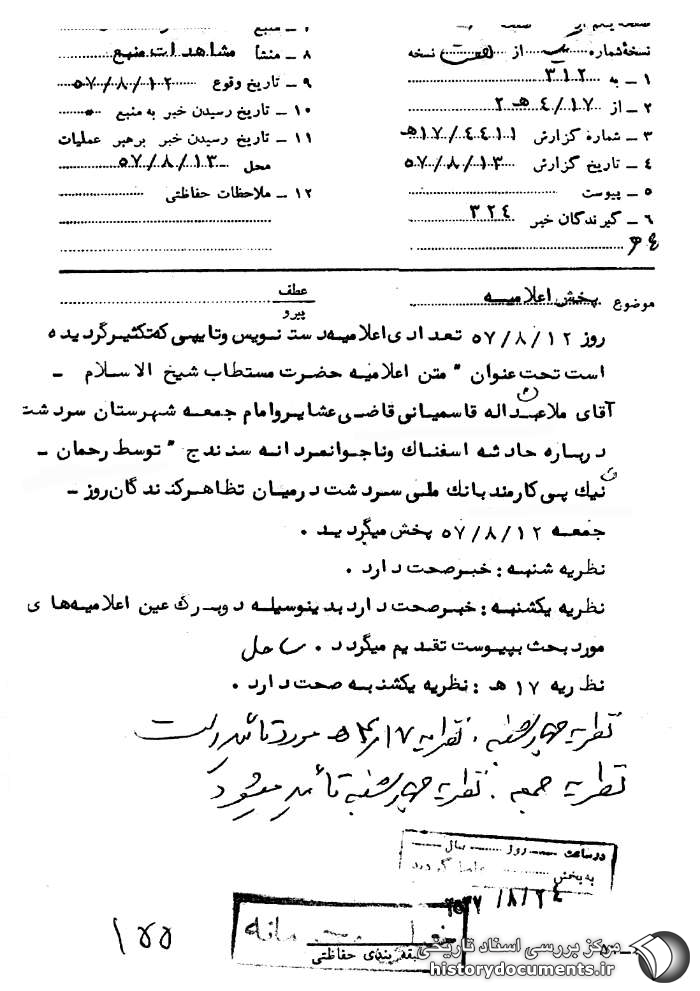 نسخهٔ شماره یک از هفت نسخه
۱ ـ به ۳۱۲
۲ ـ از ۱۷/ ۴ هـ ۲
۳ ـ شماره گزارش ۴۴۱۱/ ۱۷هـ
۴ ـ تاریخ گزارش ۵۷/۸/۱۳
۵ ـ پیوست
۶ ـ گیرندگان خبر ۳۲۴
۸ ـ منشأ مشاهدات منبع
۹ ـ تاریخ وقوع ۵۷/۸/۱۲
۱۰ ـ تاریخ رسیدن خبر به منبع
۱۱ ـ تاریخ رسیدن خبر برهبر عملیات
محل ۵۷/۸/۱۳
۱۲ ـ ملاحظات حفاظتی
موضوع پخش اعلامیه
عطف
پیرو
روز ۵۷/۸/۱۲ تعدادی اعلامیه دستنویس وتایپی که تکثیر گردیده
است تحت عنوان " متن اعلامیه حضرت مستطاب شیخ الاسلام ـ
آقای ملا عبداله قاسمیانی قاضی عشایر و امام جمعه شهرستان سردشت
درباره حادثه اسفناك وناجوانمردانه سنندج " توسط رحمان ـ
نیك پی کارمند بانك ملی سردشت درمیان تظاهرکنندگان روز ـ
جمعه ۵۷/۸/۱۲ پخش میگردید .
نظریه شنبه : خبر صحت دارد .
نظریه یکشنبه : خبر صحت دارد بدینوسیله دوبرگ عین اعلامیه های
مورد بحث بپیوست تقدیم میگردد . ساحل
نظریه ۱۷ هـ : نظریه یکشنبه صحت دارد .
نظریه چهارشنبه . نظریه ۱۷ هـ مورد تائید است
نظریه جمعه . نظریه چهارشنبه تأیید میشود
در ساعت روز سال
به بخش گردید
/۸/۲۴
طبقه بندی حفاظتی
۱۵۵
مرکز بررسی اسناد تاریخی
historydocuments.ir